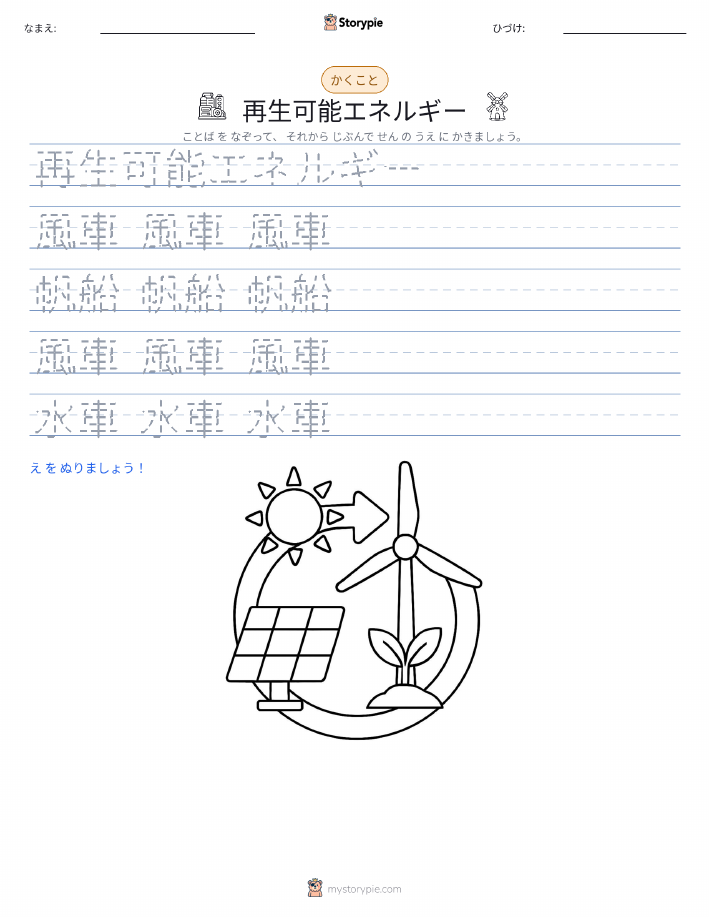 なまえ:
Storypie
ひづけ:
かくこと
再生可能エネルギー
ことば を なぞって、 それから じぶんで せん の うえ に かきましょう。
再生可能エネルギー
風車 風車 風車
帆船 帆船 帆船
風車 風車 風車
水車 水車 水車
え を ぬりましょう！
mystorypie.com